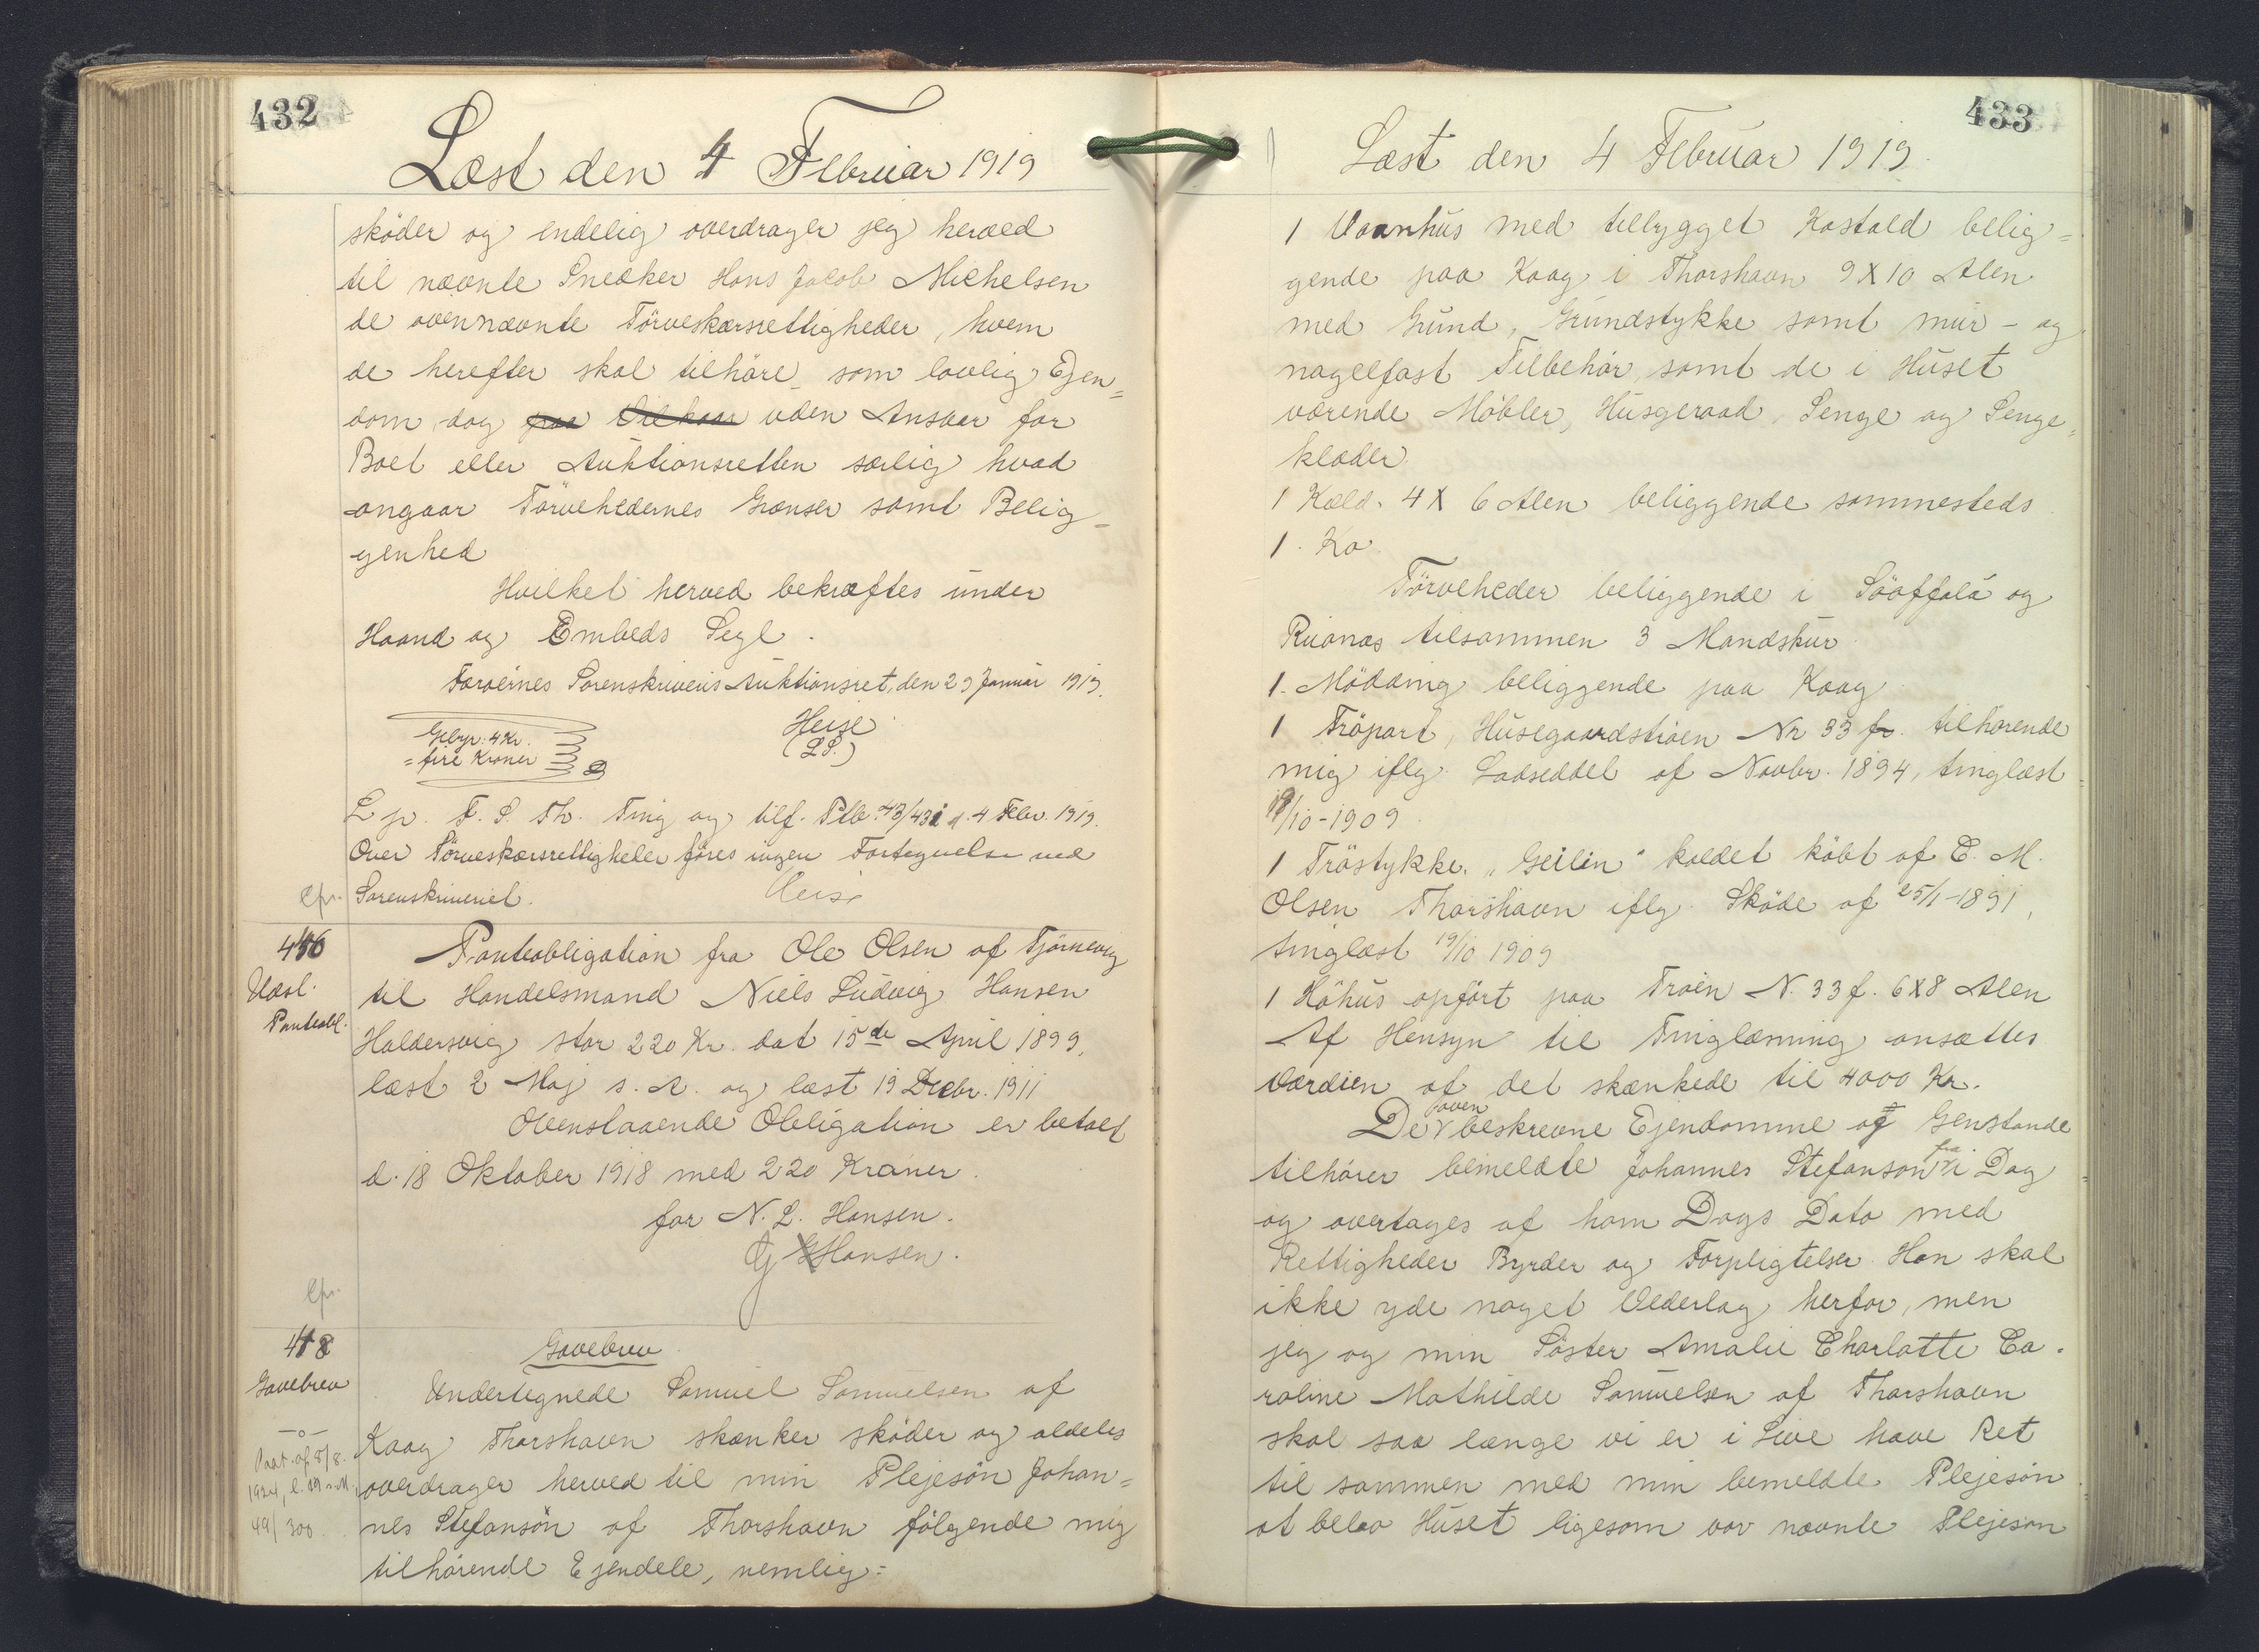 432
Læst den 4 Februar 1919
sköder og endelig overdrager jeg herved
til nævnte Snedker Hans Jacob Michelsen
de ovennævnte Törveskærsrettigheder, hvem
de herefter skal tilhöre som lovlig Ejen=
dom, dog paa Vilkaar uden Ansvar for
Boet eller Auktionsretten særlig hvad
angaar Törvehedernes Grænser samt Belig-
genhed
Hvilket herved bekræftes under
Haand og Embeds Segl.
Færøernes Sorenskriveris Auktionsret, den 29 Januar 1919.
Heise
(L.S.)
Gebyr: 4 Kr.
= fire Kroner
L. p. F. S. Th. Ting og tilf. Ptb. 43/431 d. 4 Febr. 1919.
Over Törveskærsrettigheder föres ingen Fortegnelse ved
cfr. Sorenskriveriet. Heise
416
Udsl.
Panteobl.
Panteobligation fra Ole Olsen af Tjörnevig
til Handelsmand Niels Ludvig Hansen
Haldersvig stor 220 Kr. dat 15de April 1899,
læst 2 Maj s. A. og læst 19 Decbr. 1911
Ovenstaaende Obligation er betalt
d. 18 Oktober 1918 med 220 Kroner.
for N. L. Hansen.
G Hansen.
cfr.
418
Gavebrev
Gavebrev
—o—
Paat. af 5/8.
1924, l. 19 s. M.
49/300.
Undertegnede Samuel Samuelsen af
Kaag Thorshavn skænker sköder og aldeles
overdrager herved til min Plejesön Johan=
nes Stefansön af Thorshavn fölgende mig
tilhörende Ejendele, nemlig:
433
Læst den 4 Februar 1919.
1 Vaanhus med tilbygget Kostald belig=
gende paa Kaag i Thorshavn 9 X 10 Alen
med Grund, Grundstykke samt mur- og
nagelfast Tilbehör, samt de i Huset
værende Möbler, Husgeraad, Senge og Senge=
klæder.
1 Kæld. 4 X 6 Alen beliggende sammesteds
1. Ko.
Törveheder beliggende i Söoffalá og
Ruanas tilsammen 3 Mandskur
1. Mödding beliggende paa Kaag
1 Tröpart, Husegaardströen Nr 33 f. tilhörende
mig iflg. Lodseddel af Novbr. 1894, tinglæst
19/10-1909.
1 Tröstykke. "Geilin" kaldet köbt af E. M.
Olsen Thorshavn iflg. Sköde af 25/1-1891,
tinglæst 19/10 1909
1 Höhus opfört paa Tröen N. 33 f. 6 X 8 Alen
Af Hensyn til Tinglæsning ansættes
Værdien af det skænkede til 4000 Kr.
De oven beskrevne Ejendomme og Genstande
tilhörer bemeldte Johannes Stefanson fra i Dag
og overtages af ham Dags Dato med
Rettigheder Byrder og Forpligtelser. Han skal
ikke yde noget Vederlag herfor, men
jeg og min Söster Amalie Charlotte Ca-
roline Mathilde Samuelsen af Thorshavn
skal saa længe vi er i Live have Ret
til sammen med min bemeldte Plejesön
at beboe Huset ligesom vor nævnte Plejesön